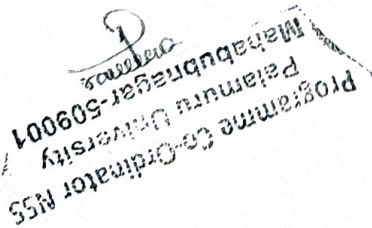 Programme Co-Ordinator NSS
Palamuru University
Mahabubnagar-509001